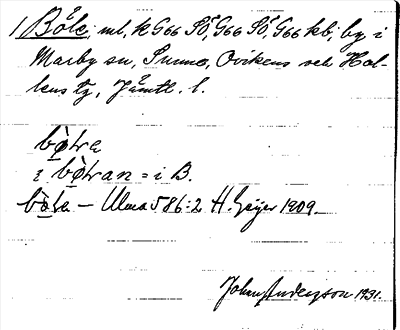 1 Böle; ml, k G66 SÖ, G66 SÖ, G66 kb; by i
Marby sn, Sunne, Ovikens och Hal-
lens tg, Jämtl. l.
bø̀lɐ
i bø̀lran = i B.
bø̀lɐ — Ulma 586:2 H. Geijer 1909.
Johan Anderzson 1931.